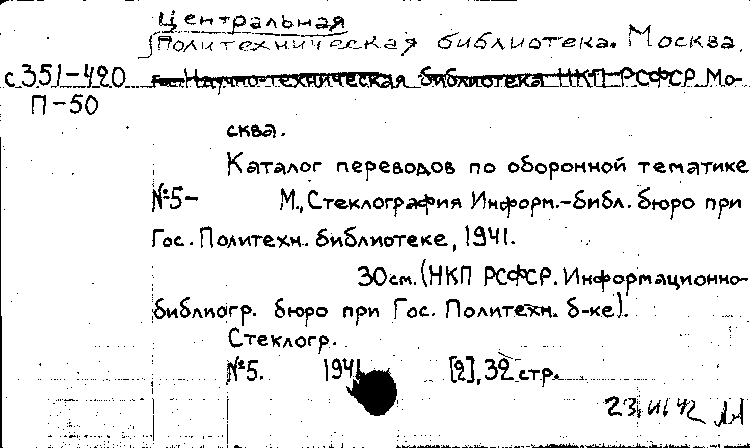 Центральная
Политехническая библиотека. Москва.
с351-420 Гос. Научно-техническая библиотека НКП РСФСР. Мо-
П-50
сква.
Каталог переводов по оборонной тематике
№5- М., Стеклография Информ.-библ. бюро при
Гос. Политехн. библиотеке, 1941.
30см. (НКП РСФСР. Информационно-
библиогр. бюро при Гос. Политехн. б-ке).
Стеклогр.
№5. 1941. [2], 32 стр.